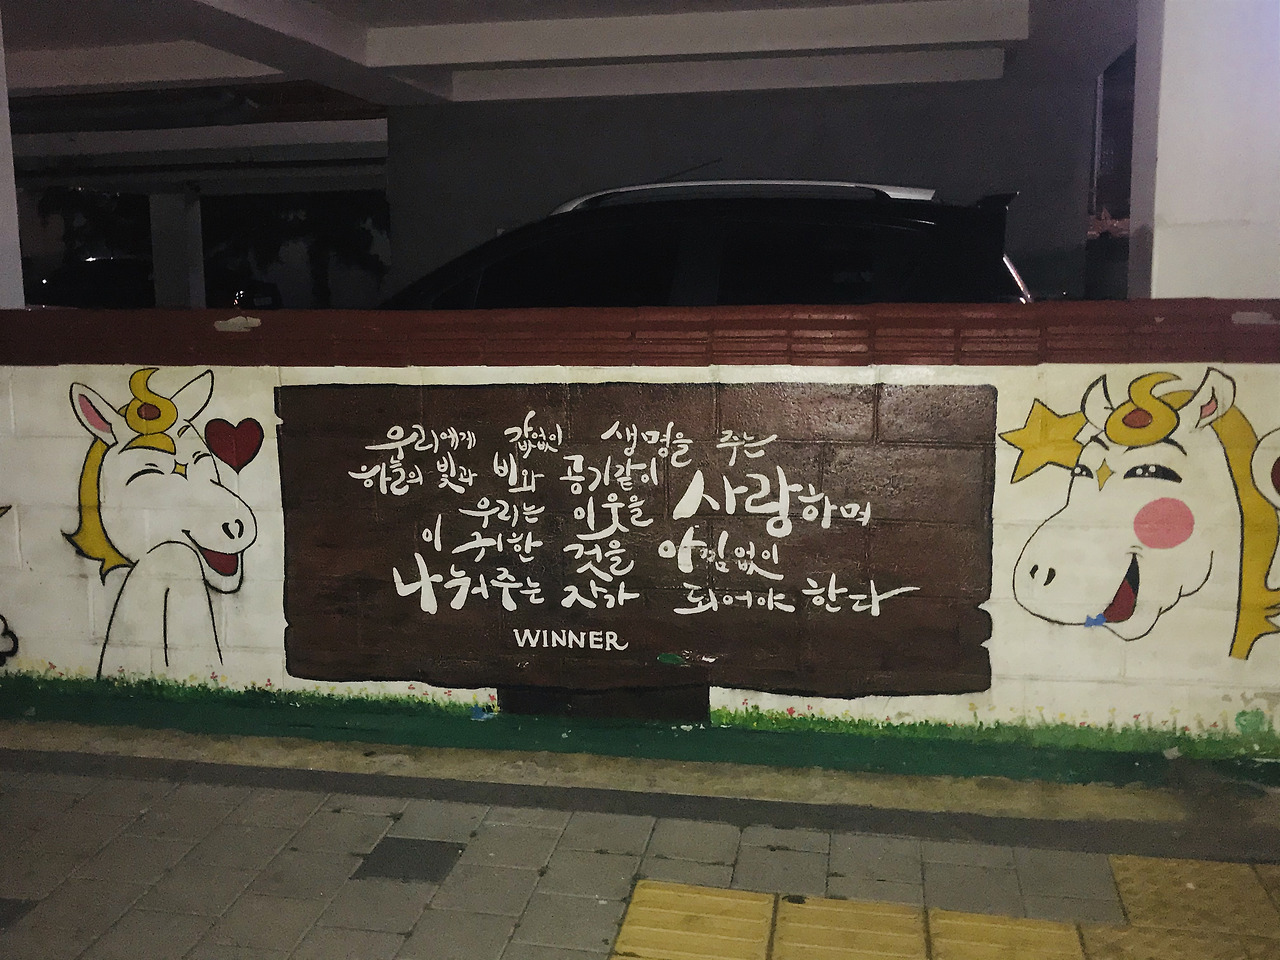 우리에게 값없이 생명을 주는
하늘의 빛과 비와 공기같이
우리는 이웃을 사랑하며
이 귀한 것을 아낌없이
나눠주는 자가 되어야 한다
WINNER